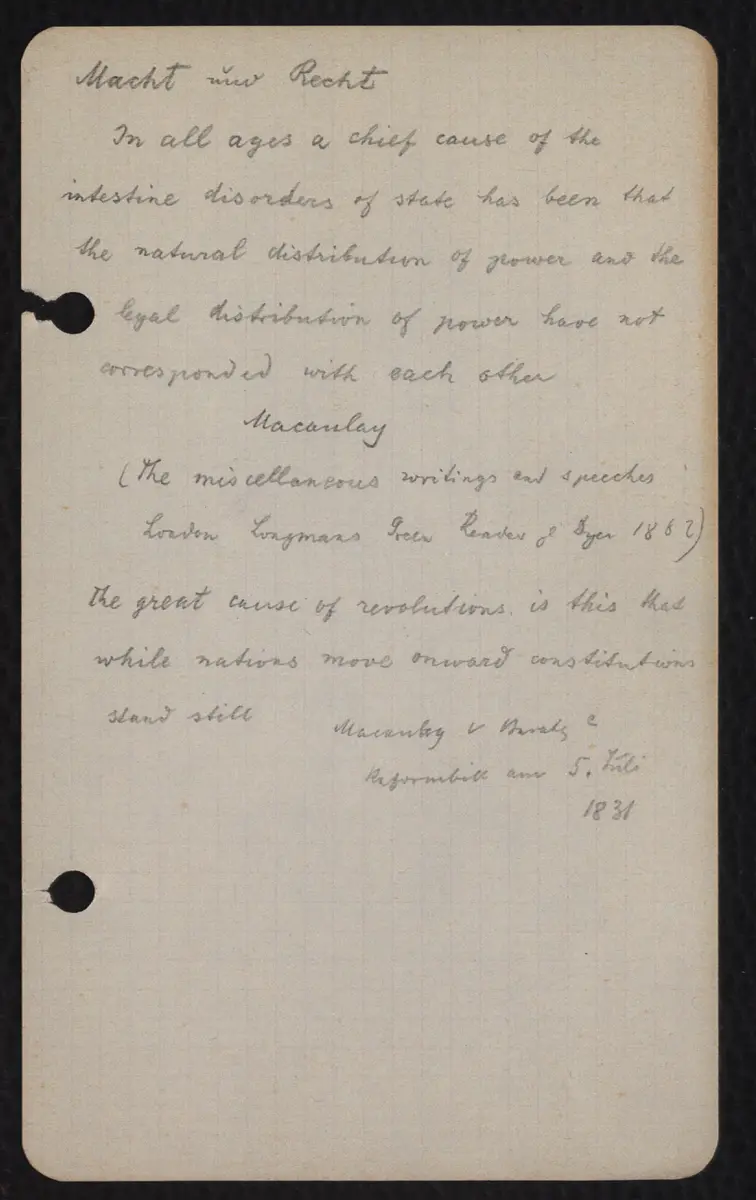 Macht und Recht
In all ages a chief cause of the
intestine disorders of state has been that
the natural distribution of power and the
legal distribution of power have not
corresponded with each other
Macaulay
(The miscellaneous writings and speeches
London Longmans Green Reader & Dyer 18
The great cause of revolutions is this that
while nations move onward constitutions
stand still
Macaulay
Reformbill am 5. Juli
1831